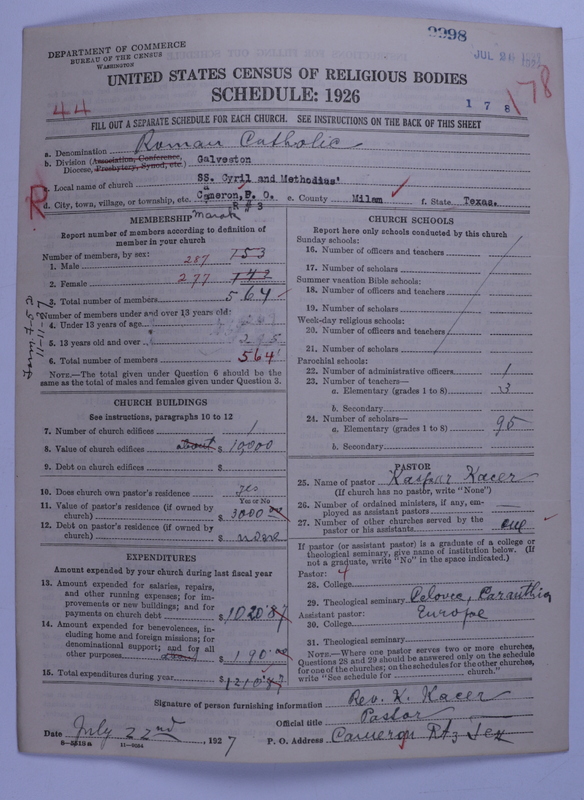 9998
DEPARTMENT OF COMMERCE
BUREAU OF THE CENSUS
WASHINGTON
JUL 26
178
UNITED STATES CENSUS OF RELIGIOUS BODIES
SCHEDULE: 1926
44
1 7 8
FILL OUT A SEPARATE SCHEDULE FOR EACH CHURCH. SEE INSTRUCTIONS ON THE BACK OF THIS SHEET
a. Denomination Roman Catholic
b. Division (Association, Conference, Diocese, Presbytery, Synod, etc.) Galveston
c. Local name of church SS. Cyril and Methodius'
R
d. City, town, village, or township, etc. Cameron, P. O. e. County Milam f. State Texas.
R # 3
MEMBERSHIP
Report number of members according to definition of
member in your church
Number of members, by sex:
1. Male 287 153
2. Female 277 142
3. Total number of members 564
Number of members under and over 13 years old:
4. Under 13 years of age
5. 13 years old and over
6. Total number of members 564
NOTE.—The total given under Question 6 should be the
same as the total of males and females given under Question 3.
Form 7-52
11-11-27
CHURCH BUILDINGS
See instructions, paragraphs 10 to 12
7. Number of church edifices 1
8. Value of church edifices about $ 10,000
9. Debt on church edifices $
10. Does church own pastor's residence yes
Yes or No
11. Value of pastor's residence (if owned by
church) $ 3000
12. Debt on pastor's residence (if owned by
church) $ none
EXPENDITURES
Amount expended by your church during last fiscal year
13. Amount expended for salaries, repairs,
and other running expenses; for im-
provements or new buildings; and for
payments on church debt $ 1020.87
14. Amount expended for benevolences, in-
cluding home and foreign missions; for
denominational support; and for all
other purposes $ 190.00
15. Total expenditures during year $ 1210.87
CHURCH SCHOOLS
Report here only schools conducted by this church
Sunday schools:
16. Number of officers and teachers
17. Number of scholars
Summer vacation Bible schools:
18. Number of officers and teachers
19. Number of scholars
Week-day religious schools:
20. Number of officers and teachers
21. Number of scholars
Parochial schools:
22. Number of administrative officers 1
23. Number of teachers—
a. Elementary (grades 1 to 8) 3
b. Secondary
24. Number of scholars—
a. Elementary (grades 1 to 8) 95
b. Secondary
PASTOR
25. Name of pastor Kaspar Kacer
(If church has no pastor, write "None")
26. Number of ordained ministers, if any, em-
ployed as assistant pastors
27. Number of other churches served by the
pastor or his assistants one
If pastor (or assistant pastor) is a graduate of a college or
theological seminary, give name of institution below. (If
not a graduate, write "No" in the space indicated.)
Pastor: 4
28. College
29. Theological seminary Celovec, Carinthia
Assistant pastor: Europe
30. College
31. Theological seminary
NOTE.—Where one pastor serves two or more churches,
Questions 28 and 29 should be answered only on the schedule
for one of the churches; on the schedules for the other churches,
write "See schedule for church."
Signature of person furnishing information Rev. K. Kacer
Official title Pastor
Date July 22nd, 1927 P. O. Address Cameron Rt 3 Tex
8—5518a 11—9264